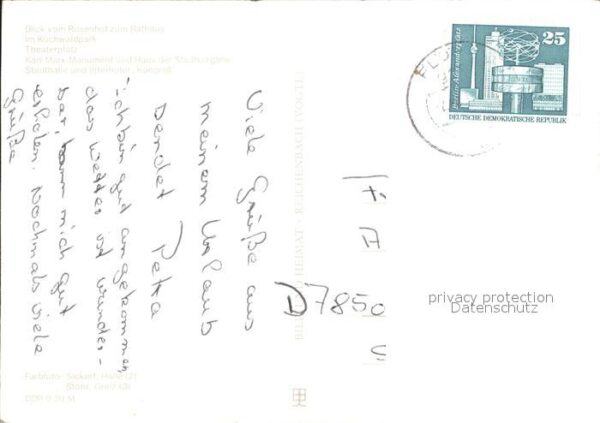 Blick vom Rosenhof zum Rathaus
Im Küchwaldpark
Theaterplatz
Karl-Marx-Monument und Haus der Staatsorgane
Stadthalle und Interhotel „Kongreß"
Viele Grüße aus
meinem Urlaub
sendet Petra
ich bin gut angekommen,
das Wetter ist wunder-
bar, kann mich gut
erholen. Nochmals viele
Grüße
BILD HEIMAT · REICHENBACH (VOGTL)
25
Berlin-Alexanderplatz
DEUTSCHE DEMOKRATISCHE REPUBLIK
F
A
D7850
privacy protection
Datenschutz
Farbfoto:
DDR 0,20 M